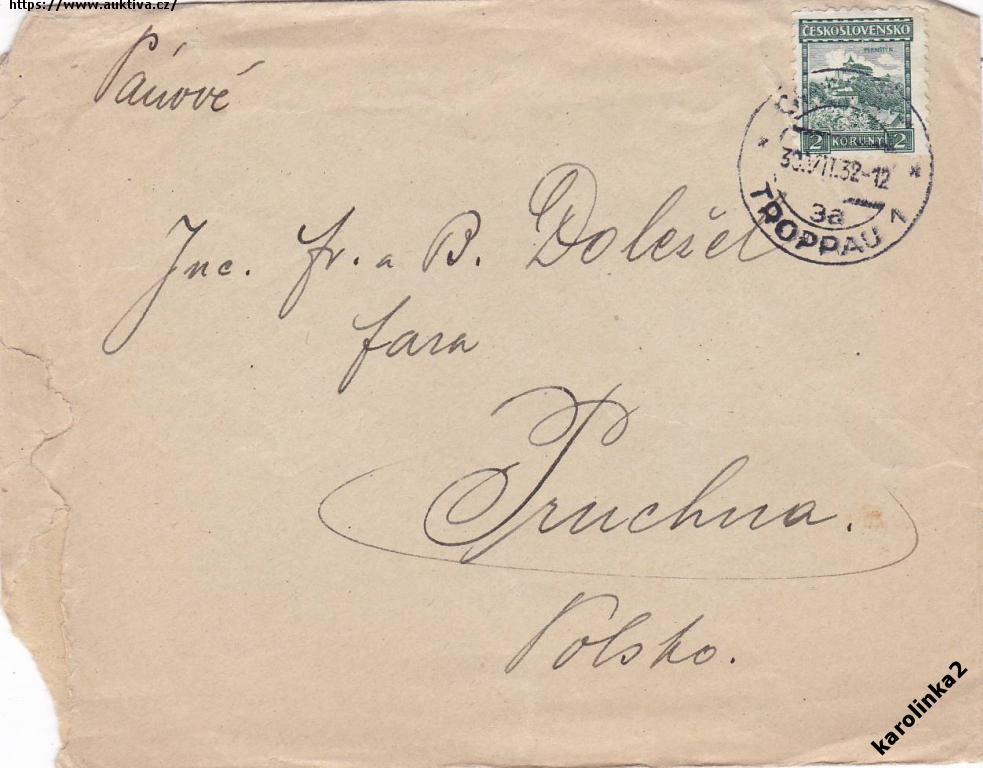 https://www.auktiva.cz/
ČESKOSLOVENSKO
PERNŠTEJN
2 KORUNY 2
30.VII.32-12
3a
TROPPAU 1
Pánové
Inc. fr. a B. Doležel
fara
Pruchna.
Polsko.
karolinka2